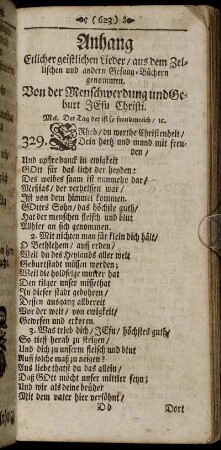 (623)
Anhang
Etlicher geistlichen Lieder / aus dem Zel-
lischen und andern Gesang-Büchern
genommen.
Von der Menschwerdung und Ge-
burt JEsu Christi.
Mel. Der Tag der ist so freudenreich / ꝛc.
329. du werthe Christenheit /
Dein hertz und mund mit freu-
den /
Und opffre danck in ewigkeit
GOtt für das licht der heyden:
Des weibes saam ist nunmehr dar /
Meßias / der verheissen war
Ist von dem himmel kommen.
Gottes Sohn / das höchste guth /
Hat der menschen fleisch und blut
Allhier an sich genommen.
2. Mit nichten man für klein dich hält /
O Bethlehem / auff erden /
Weil du des Heylands aller welt
Geburtsstadt müssen werden;
Weil die holdselge mutter hat
Den tilger unser missethat
In dieser stadt gebohren /
Dessen ausgang allbereit
Vor der welt / von ewigkeit /
Gewesen und erkoren.
3. Was trieb dich / JEsu / höchstes guth /
So tieff herab zu steigen /
Und dich zu unserm fleisch und blut
Auff solche maß zu neigen?
Aus liebe thatst du das allein /
Daß GOtt möcht unser mittler seyn;
Und wir als deine brüder
Mit dem vater hier versöhnt /
D d
Dort